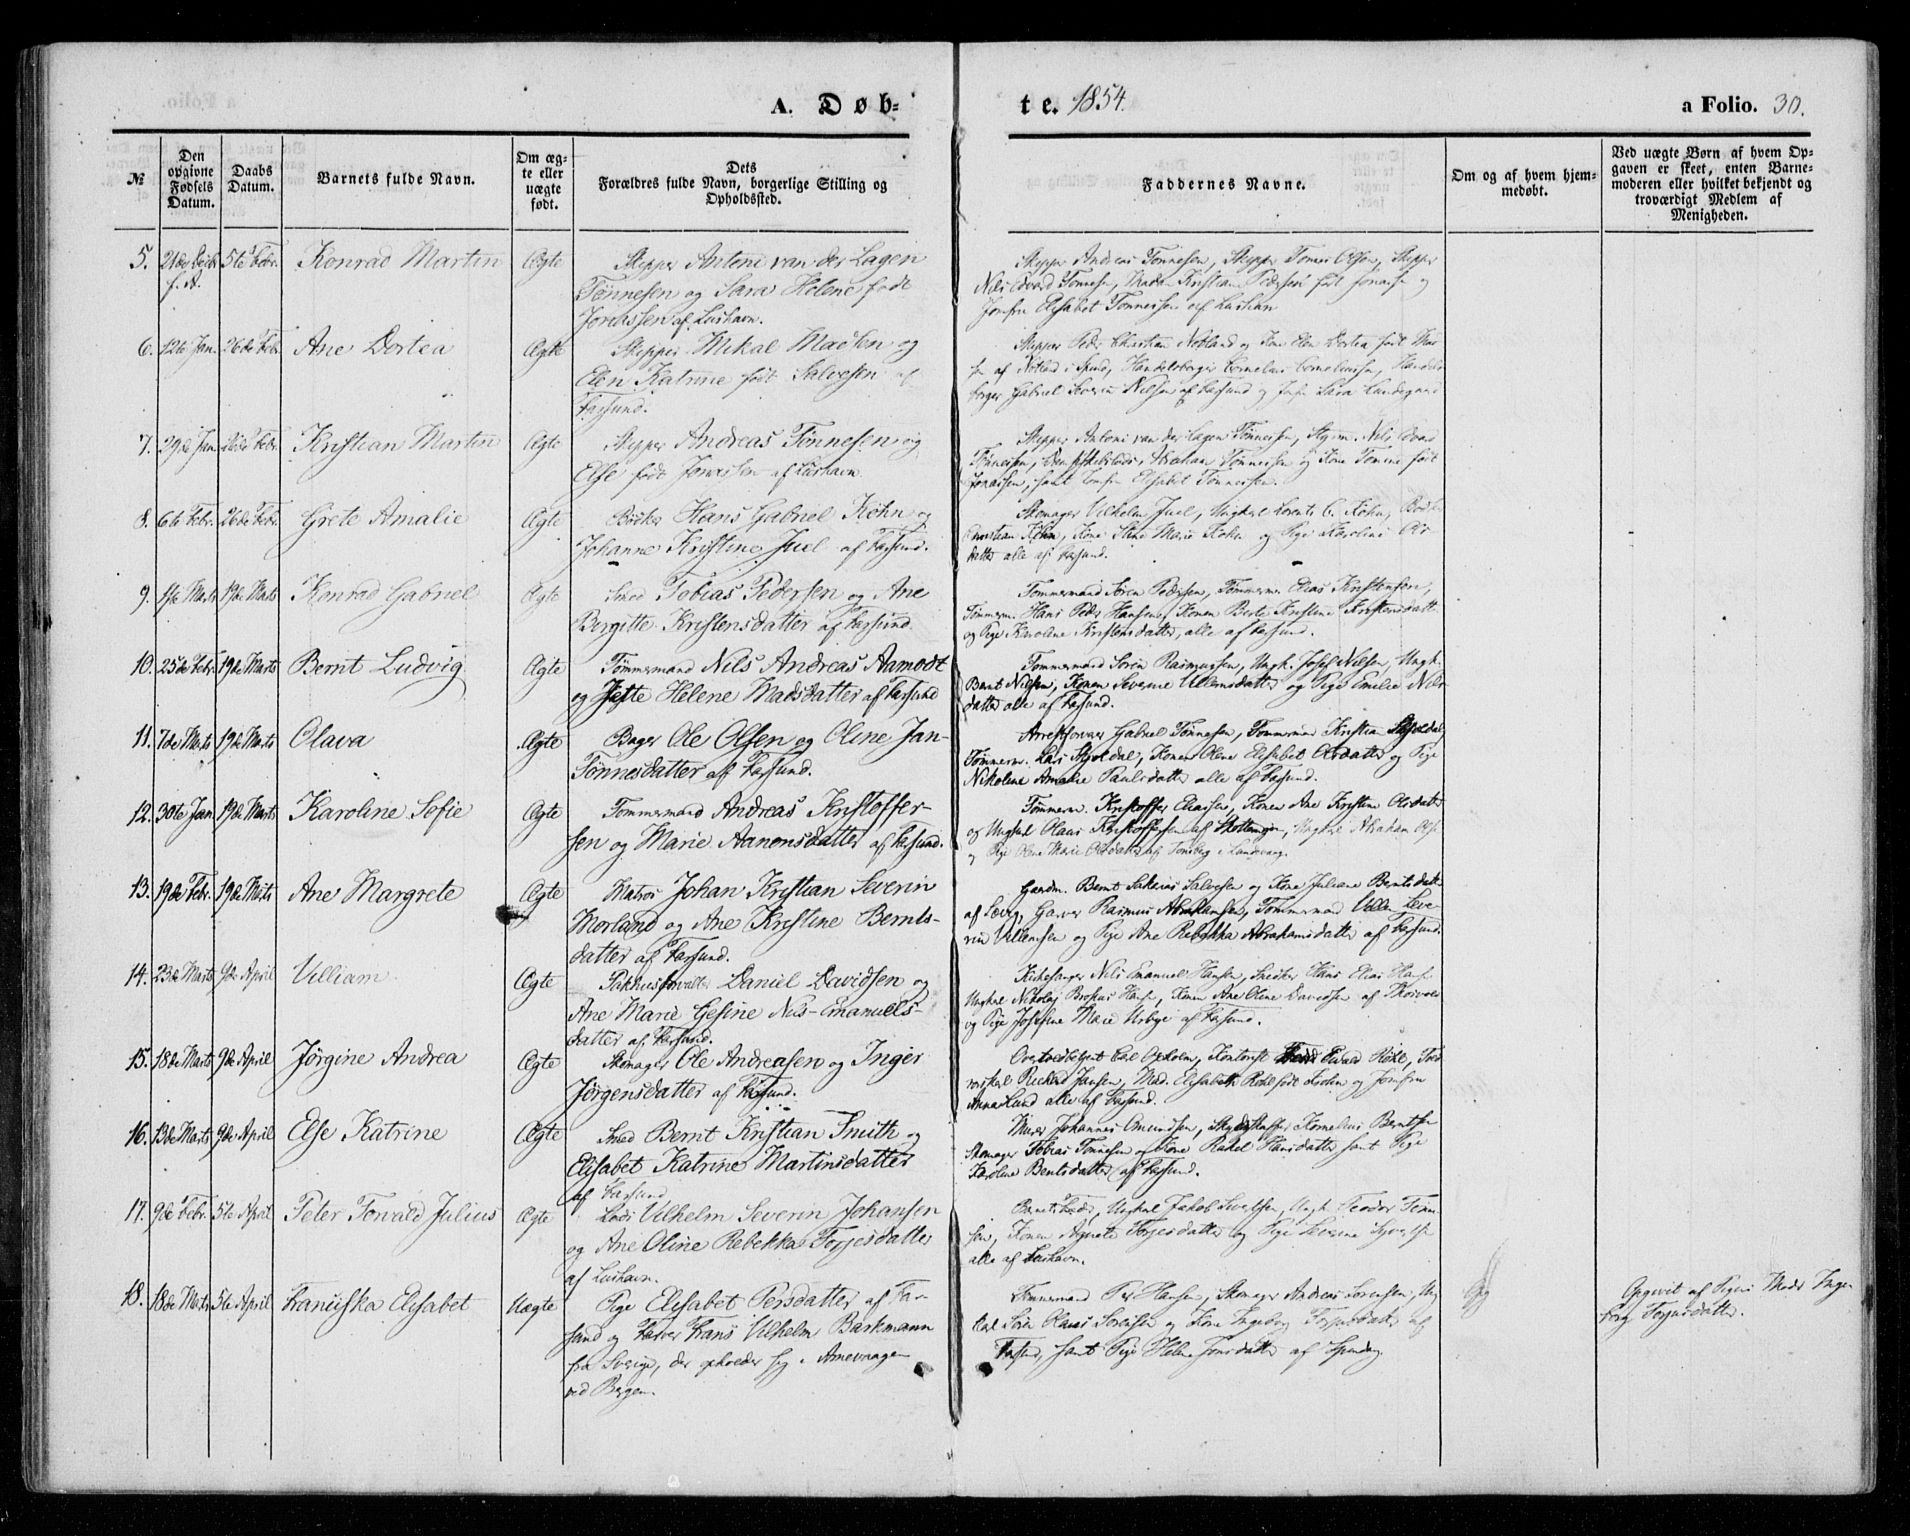 A. Døb-
te. 1854.
a Folio. 30.
№
Den opgivne Fødsels Datum.
Daabs Datum.
Barnets fulde Navn.
Om ægte eller uægte født.
Dets Forældres fulde Navn, borgerlige Stilling og Opholdssted.
Faddernes Navne.
Om og af hvem hjemmedøbt.
Ved uægte Børn af hvem Opgaven er skeet, enten Barnemoderen eller hvilket bekjendt og troværdigt Medlem af Menigheden.
5. 21de Decbr. f. A. 5te Febr. Konrad Martin Ægte Skipper Antoni van der Lagen
Tønnesen og Sara Helene født
Jonassen af Lushavn.
Skipper Andreas Tønnesen, Skipper Tomas Olsen, Skipper
Nils Edvard Tønnesen, Madam Kristiane Pedersen født Jonassen og
Jomfru Elisabet Tønnessen af Lushavn
6. 12te Jan. 26de Febr. Ane Dortea Ægte Skipper Mikal Madsen og
Elen Katrine født Salvesen af
Farsund.
Skipper Peder Christian Notland og Kone Elen Dortea født
af Notland i Spind, Handelsborger Cornelius Corneliussen, Handels-
borger Gabriel Severin Nilsen af Farsund og Jomfru Sara Lundegaard
7. 29de Jan. 26de Febr. Kristian Martin Ægte Skipper Andreas Tønnesen og
Else født Jonassen af Lushavn
Skipper Antoni van der Lagen Tønnessen, Styrm. Nils Edvard
Tønnessen, Abraham Tønnessen og Kone Tomine født
Jonassen, samt Jomfru Elisabet Tønnessen.
8. 6te Febr. 26de Febr. Grete Amalie Ægte Bødker Hans Gabriel Køhn og
Johanne Kristine Juel af Farsund.
Skomager Vilhelm Juel, Ungkarl Lorents C. Køhn, Bødker
Christian Køhn, Kone Stine Marie Køhn og Pige Karoline Ols-
datter alle af Farsund.
9. 1ste Marts 19de Marts Konrad Gabriel Ægte Smed Tobias Pedersen og Ane
Birgitte Kristensdatter af Farsund.
Tømmermand Søren Pedersen, Tømmerm. Elias Kristensen,
Tømmerm. Hans Peder Hansen, Konen Berte Kristine Kristensdatt.
og Pige Karoline Kristensdatter, alle af Farsund.
10. 25de Febr. 19de Marts Bernt Ludvig Ægte Tømmermand Nils Andreas Aamodt
og Jette Helene Madsdatter af Farsund
Tømmermand Søren Rasmussen, Ungk. Josef Nilsen, Ungk.
Bernt Nilsen, Konen Severine Villemsdatter og Pige Emilie Nils-
datter alle af Farsund.
11. 7de Marts 19de Marts Olava Ægte Bager Ole Olsen og Oline Jan-
Tønnesdatter af Farsund.
Arrestforvarer Gabriel Tønnesen, Tømmermand Kristian Skjoldal,
Tømmerm. Lars Skjoldal, Konen Olene Elisabet Olsdatter og Pige
Nikoline Amalie Paulsdatter alle af Farsund.
12. 30te Jan. 19de Marts Karoline Sofie Ægte Tømmermand Andreas Kristoffer-
sen og Marie Aanonsdatter af Farsund.
Tømmerm. Kristoffer Eliassen, Konen Ane Kristine Olsdatter
og Ungkarl Olaus Kristoffersen af, Ungkarl Abraham Ols.
og Pige Olene Marie Olsdatter af
13. 19de Febr. 19de Marts Ane Margrete Ægte Matros Johan Kristian Severin
Morland og Ane Kristine Bernts-
datter af Farsund.
Gaardm. Bernt Sakarias Salvesen og Kone Juliane Berntsdatter
af, Garver Rasmus Abrahamsen, Tømmermand Villem Seve-
rin Villemsen og Pige Ane Rebekka Abrahamsdatter af Farsund.
14. 23de Marts 9de April Villiam Ægte Pakhusforvalter Daniel Davidsen og
Ane Marie Gesine Nils-Emanuels-
datter af Farsund.
Kirkesanger Nils Emanuel Hansen, Snedker Hans Elias Hans.
Ungkarl Nikolaj Hans., Konen Ane Oline Davidsen af
og Pige Josefine Marie Urbye af Farsund.
15. 18de Marts 9de April Jørgine Andrea Ægte Skomager Ole Andreasen og Inger
Jørgensdatter af Farsund.
Overtoldbetjent Carl Oxholm, Kontorist Edvard Røhl,
Rickard Jansen, Mad. Elisabeth Røhl født og Jomfru
Anna Lund alle af Farsund.
16. 13de Marts 9de April Else Katrine Ægte Smed Bernt Kristian Smith og
Elisabet Katrine Martinsdatter
af Farsund
Murer Johannes Omundsen, Skydsskaffer Kornelius Berntsen
Skomager Tobias Tønnesen og Kone Rakel Hansdatter samt Pige
Karoline Berntsdatter af Farsund.
17. 9de Febr. 5te April Peter Torvald Julius Ægte Lods Vilhelm Severin Johansen
og Ane Oline Rebekka Torjesdatter
af Lushavn.
Ungkarl Jakob Sivertsen, Ungk. Teodor Tønne-
sen, Konen Agnete Torjesdatter og Pige Severine
alle af Lushavn.
18. 18de Marts 5te April Fransiska Elisabet Uægte Pige Elisabet Persdatter af Far-
sund og Farver Frans Vilhelm Barkmann
fra Sverige, der opholder sig i Arnevaagen
ved Bergen.
Tømmermand Per Hansen, Skomager Andreas Sørensen, Ung-
karl Søren Olaus Sørensen og Kone Ingeborg Torjusdatter af
Farsund, samt Pige Helene Jonsdatter af
Opgivet af Pigens Moder Inge-
borg Torjusdatter.